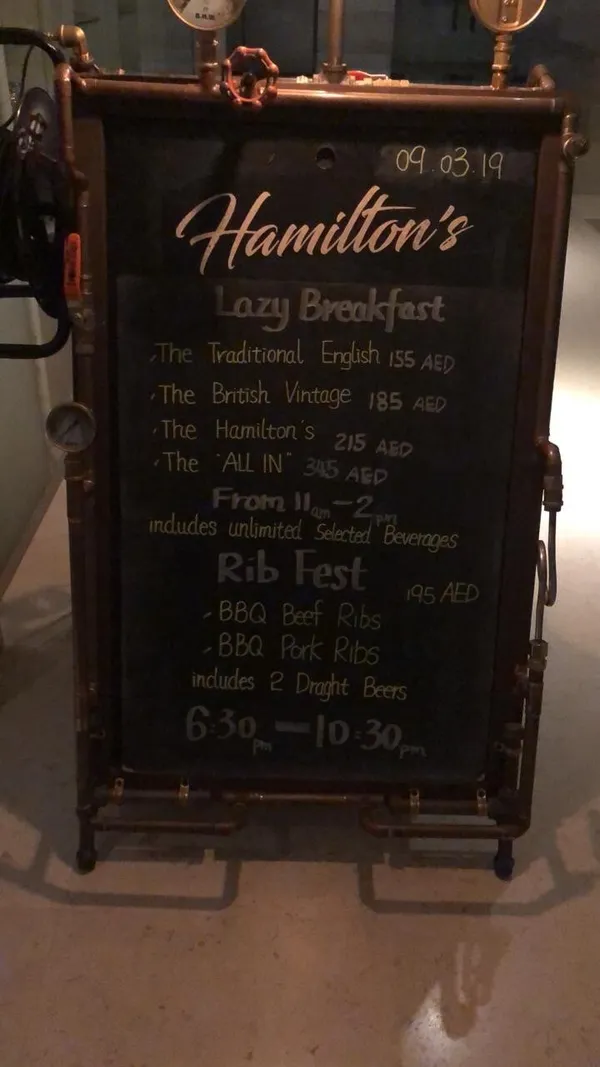 09.03.19
Hamilton's
Lazy Breakfast
The Traditional English 155 AED
The British Vintage 185 AED
The Hamilton's 215 AED
The "ALL IN" 345 AED
From 11am - 2pm
includes unlimited Selected Beverages
Rib Fest
195 AED
- BBQ Beef Ribs
- BBQ Pork Ribs
includes 2 Draght Beers
6:30pm - 10:30pm